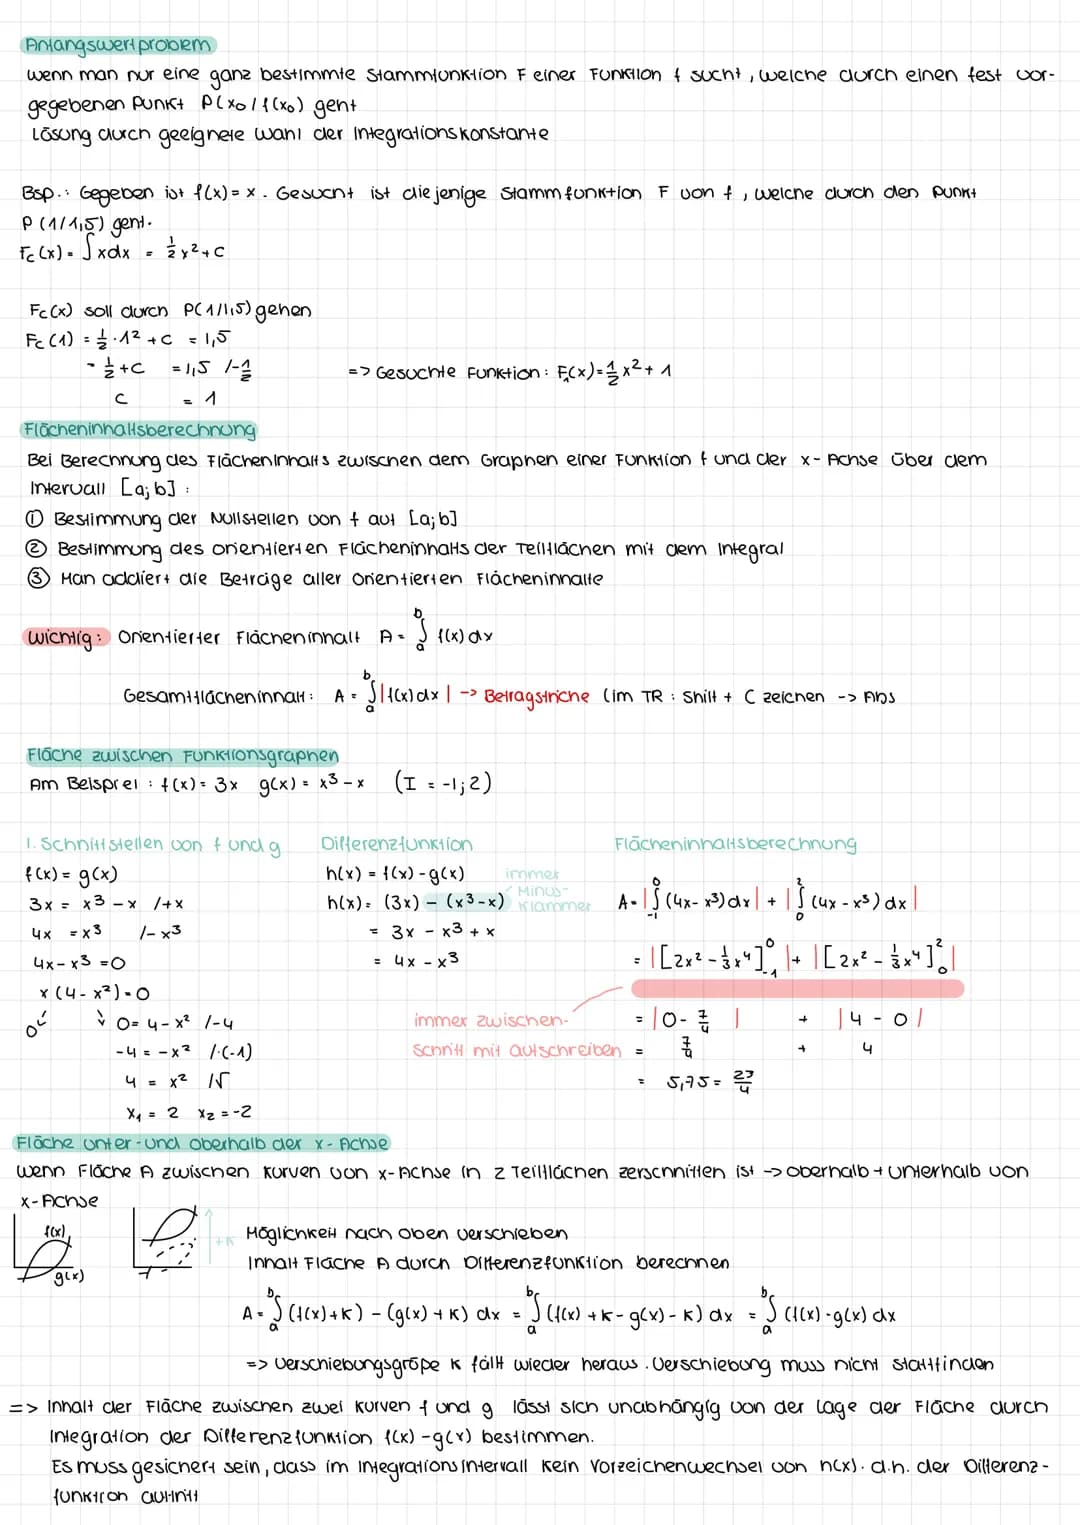 Anfangswertproblem
wenn man nur eine ganz bestimmte Stammfunktion F einer Funktion f sucht, welche durch einen fest vor-
gegebenen Punkt P(x₀/f(x₀) geht
Lösung durch geeignete Wahl der Integrationskonstante
Bsp.: Gegeben ist f(x) = x. Gesucht ist diejenige Stammfunktion F von f, welche durch den Punkt
P (1/1,5) geht.
Fc (x) = ∫xdx = 1/2 x² + C
Fc(x) soll durch P(1/1,5) gehen
Fc (1) = 1/2 · 1² + C = 1,5
= 1/2 + C = 1,5 /-1/2
=> Gesuchte Funktion: F₁(x) = 1/2 x² + 1
C = 1
Flächeninhaltsberechnung
Bei Berechnung des Flächeninhalts zwischen dem Graphen einer Funktion f und der x-Achse über dem
Intervall [a;b] :
① Bestimmung der Nullstellen von f auf [a;b]
② Bestimmung des orientierten Flächeninhalts der Teilflächen mit dem Integral
③ Man addiert die Beträge aller orientierten Flächeninhalte
Wichtig: Orientierter Flächeninhalt A = ∫ₐᵇ f(x) dx
Gesamtflächeninhalt: A = ∫ₐᵇ |f(x) dx | -> Betragstriche (im TR : Shift + C zeichen -> Abs
Fläche zwischen Funktionsgraphen
Am Beispiel : f(x) = 3x g(x) = x³ - x (I = -1; 2)
1. Schnittstellen von f und g
f(x) = g(x)
3x = x³ - x /+x
4x = x³ /- x³
4x - x³ = 0
x (4 - x²) = 0
0 0 = 4 - x² /-4
-4 = -x² /·(-1)
4 = x² /√
x₁ = 2 x₂ = -2
Differenzfunktion
h(x) = f(x) - g(x)
immer
Minus-
h(x) = (3x) - (x³ - x) Klammer
= 3x - x³ + x
= 4x - x³
immer zwischen-
schritt mit aufschreiben
Flächeninhaltsberechnung
A = |∫₋₁⁰ (4x - x³) dx| + |∫₀² (4x - x³) dx|
= |[2x² - 1/3 x⁴]₋₁⁰| + |[2x² - 1/3 x⁴]₀²|
= |0 - 7/4 | + |4 - 0|
= 7/4 + 4
= 5,75 = 23/4
Fläche unter- und oberhalb der x-Achse
wenn Fläche A zwischen Kurven von x-Achse in 2 Teilflächen zerschnitten ist -> oberhalb + unterhalb von
x-Achse
f(x)
g(x)
+K
Möglichkeit nach oben verschieben
Inhalt Fläche A durch Differenzfunktion berechnen
A = ∫ₐᵇ (f(x)+K) - (g(x) + K) dx = ∫ₐᵇ (f(x) + K - g(x) - K) dx = ∫ₐᵇ (f(x) - g(x) dx
=> Verschiebungsgröße K fällt wieder heraus. Verschiebung muss nicht stattfinden
=> Inhalt der Fläche zwischen zwei Kurven f und g lässt sich unabhängig von der Lage der Fläche durch
Integration der Differenzfunktion f(x) - g(x) bestimmen.
Es muss gesichert sein, dass im Integrationsintervall kein Vorzeichenwechsel von h(x). d.h. der Differenz-
funktion auftritt